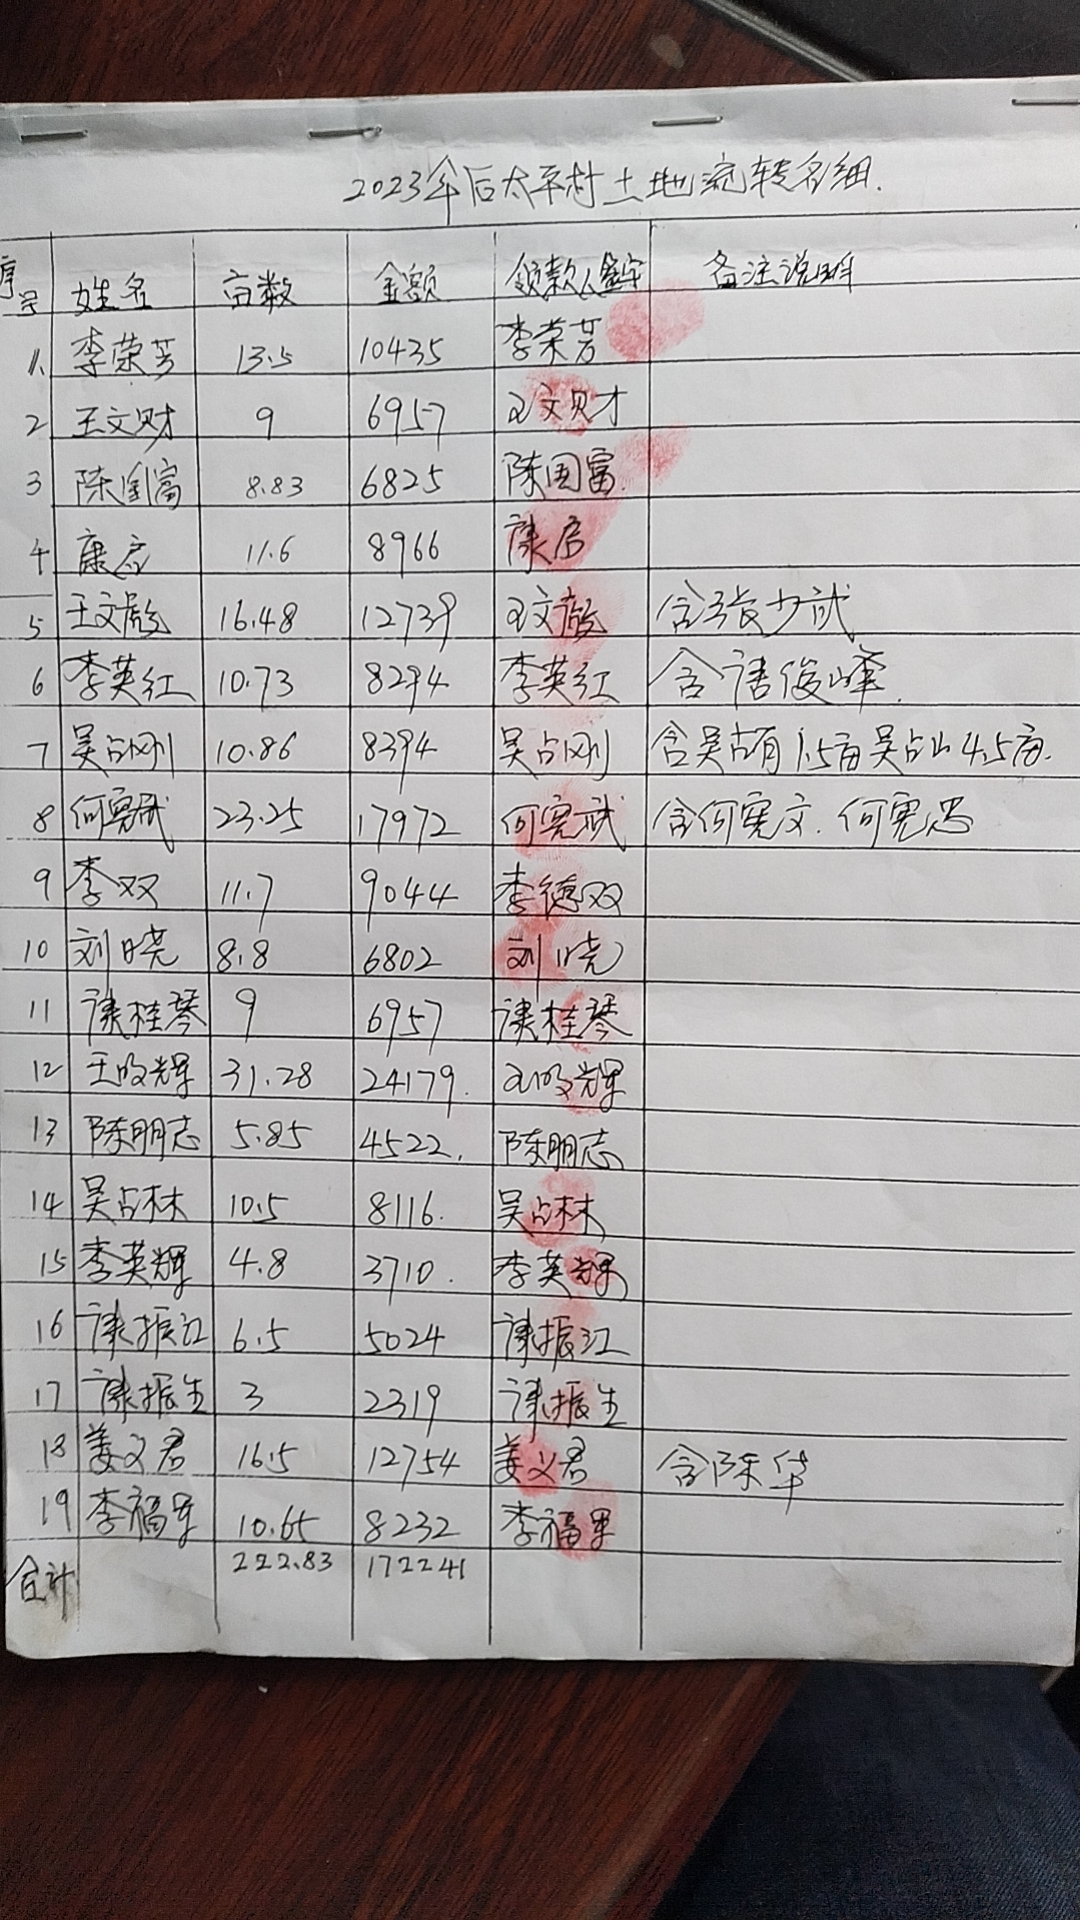 2023年后太平村土地流转名细.
序号 姓名 亩数 金额 领款人签字 备注说明
1. 李荣芳 13.5 10435 李荣芳
2 王文财 9 6957 王文财
3 陈国富 8.83 6825 陈国富.
4 康启 11.6 8966 康启
5 王文彪 16.48 12739 王文彪 含张少武
6 李英红 10.73 8294 李英红 含唐俊峰.
7 吴占刚 10.86 8394 吴占刚 含吴占有1.5亩吴占山4.5亩.
8 何宪武 23.25 17972 何宪武 含何宪文.何宪忠
9 李双 11.7 9044 李德双
10 刘晓 8.8 6802 刘晓
11 谏桂琴 9 6957 谏桂琴
12 王晓辉 31.28 24179. 王晓辉
13 陈朋志 5.85 4522. 陈朋志
14 吴占林 10.5 8116. 吴占林
15 李英辉 4.8 3710. 李英辉
16 谏振江 6.5 5024 谏振江
17 谏振生 3 2319 谏振生
18 姜义君 16.5 12754 姜义君 含陈华
19 李福军 10.65 8232 李福军
合计 222.83 172241